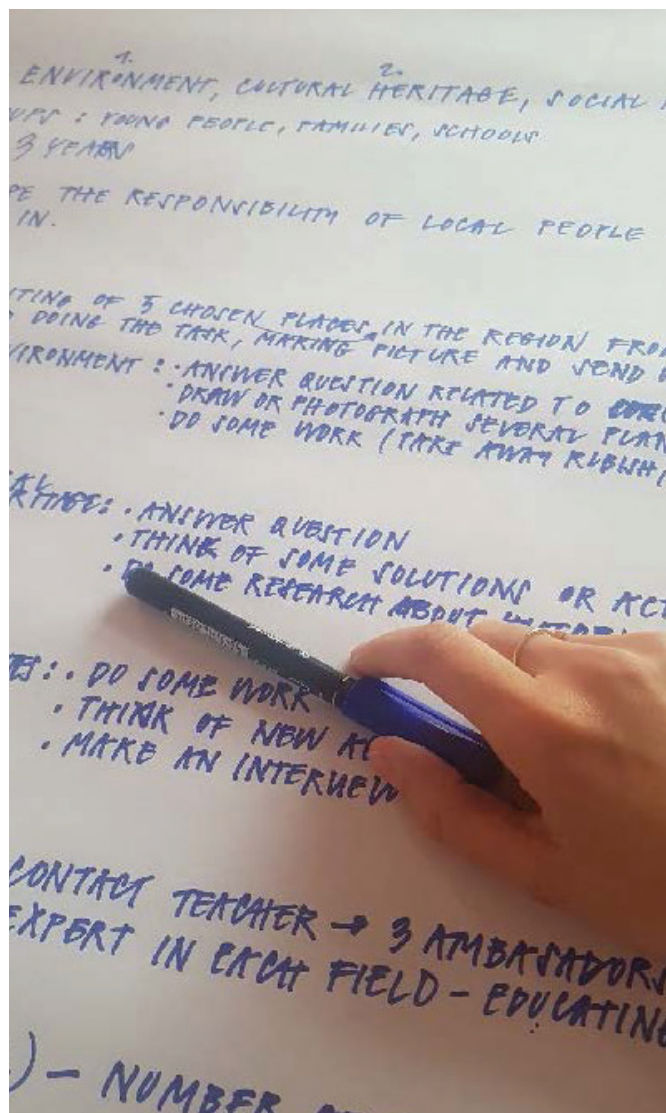 1. 2.
ENVIRONMENT, CULTURAL HERITAGE, SOCIAL
UPS : YOUNG PEOPLE, FAMILIES, SCHOOLS
3 YEARS
PE THE RESPONSIBILITY OF LOCAL PEOPLE
IN.
TING OF 5 CHOSEN PLACES IN THE REGION FROM
DOING THE TASK, MAKING PICTURE AND SEND
VIRONMENT : · ANSWER QUESTION RELATED TO
· DRAW OR PHOTOGRAPH SEVERAL PLAN
· DO SOME WORK (TAKE AWAY RUBISH,
· ANSWER QUESTION
· THINK OF SOME SOLUTIONS OR ACT
· DO SOME RESEARCH ABOUT
ES : · DO SOME WORK
· THINK OF NEW
· MAKE AN INTERVIEW
CONTACT TEACHER → 3 AMBASADORS
EXPERT IN EACH FIELD - EDUCATING
) - NUMBER